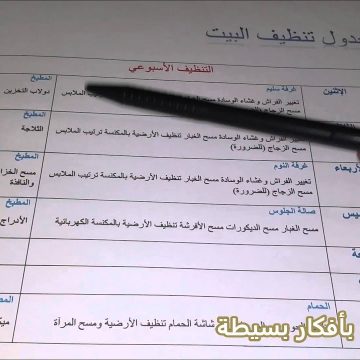 جدول تنظيف البيت
التنظيف الأسبوعي
الاثنين
غرفة سليم
تغيير الفراش وغشاء الوسادة مسح الغبار تنظيف الأرضية
الملابس
مسح الزجاج (للضرورة)
المطبخ
دولاب التخزين
تغيير الفراش وغشاء الوسادة مسح الغبار تنظيف الأرضية بالمكنسة ترتيب الملابس
مسح الزجاج (للضرورة)
المطبخ
الثلاجة
الأربعاء
غرفة النوم
تغيير الفراش وغشاء الوسادة مسح الغبار تنظيف الأرضية بالمكنسة ترتيب الملابس
مسح الزجاج (للضرورة)
المطبخ
مسح
والنافذة
صالة الجلوس
مسح الغبار مسح الديكورات مسح الأفرشة تنظيف الأرضية بالمكنسة الكهربائية
المطبخ
الأدراج
الحمام
شاشة الحمام تنظيف الأرضية ومسح المرآة
بأفكار بسيطة